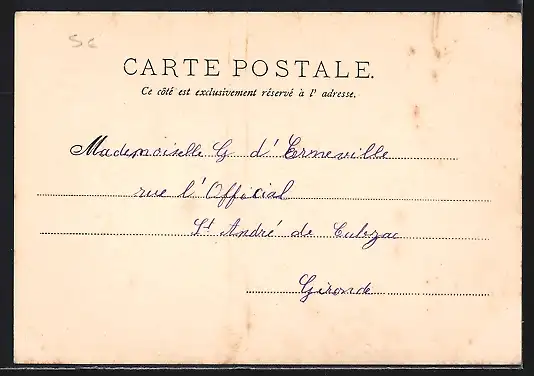 5c
CARTE POSTALE.
Ce côté est exclusivement réservé à l' adresse.
Mademoiselle G d'Ermeville
rue l'Official
St André de Cubzac
Gironde